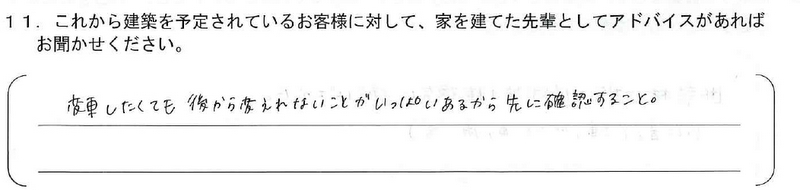 １１．これから建築を予定されているお客様に対して、家を建てた先輩としてアドバイスがあれば
お聞かせください。
変更したくても後から変えれないことがいっぱいあるから先に確認すること。